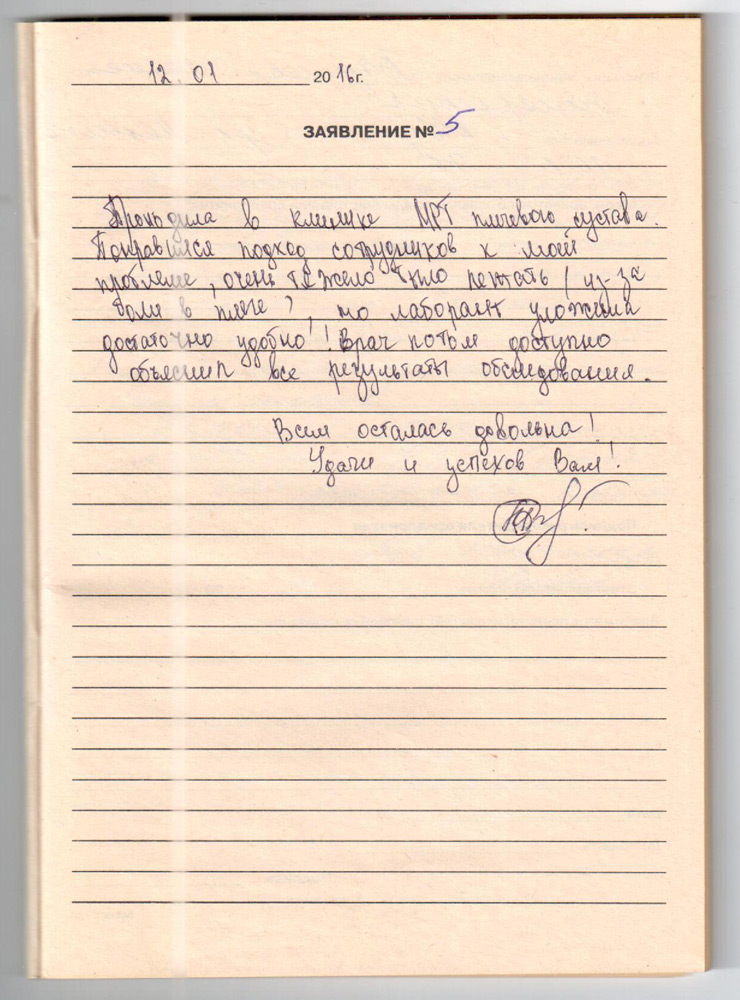 12. 01 2016г.
ЗАЯВЛЕНИЕ № 5
Проходила в клинике МРТ плечевого сустава.
Понравился подход сотрудников к моей
проблеме, очень тяжело было лежать (из-за
боли в плече), но лаборант уложила
достаточно удобно! Врач потом доступно
объяснил все результаты обследования.
Всем осталась довольна!
Удачи и успехов Вам!